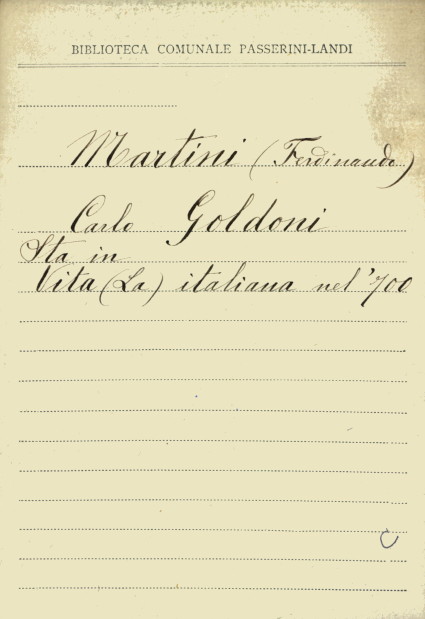 BIBLIOTECA COMUNALE PASSERINI-LANDI
Martini (Ferdinando)
Carlo Goldoni
Sta in
Vita (La) italiana nel '700
C